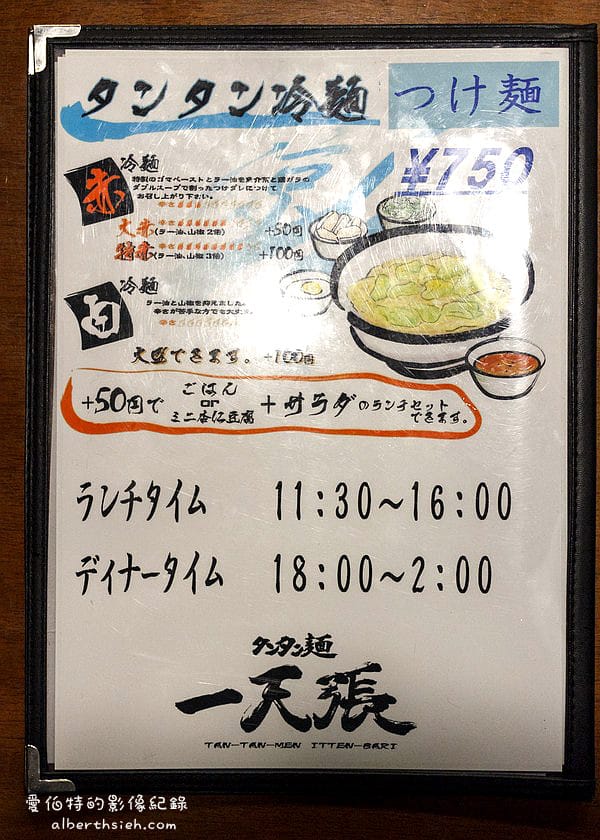 タンタン冷麺
つけ麺
¥750
赤
冷麺
特製のゴマペーストとラー油を魚介系と鶏ガラの
ダブルスープで割ったつけダレにつけて
お召し上がり下さい。
辛さ
大赤(ラー油、山椒2倍) +50円
特赤(ラー油、山椒3倍) +100円
白
冷麺
ラー油と山椒を抑えました。
辛さが苦手な方でも大丈夫
辛さ
大盛できます。+100円
+50円で ごはん or ミニ杏仁豆腐 + サラダのランチセットできます。
ランチタイム 11:30～16:00
ディナータイム 18:00～2:00
タンタン麺
一天張
TAN-TAN-MEN ITTEN-BARI
愛伯特的影像紀錄
alberthsieh.com